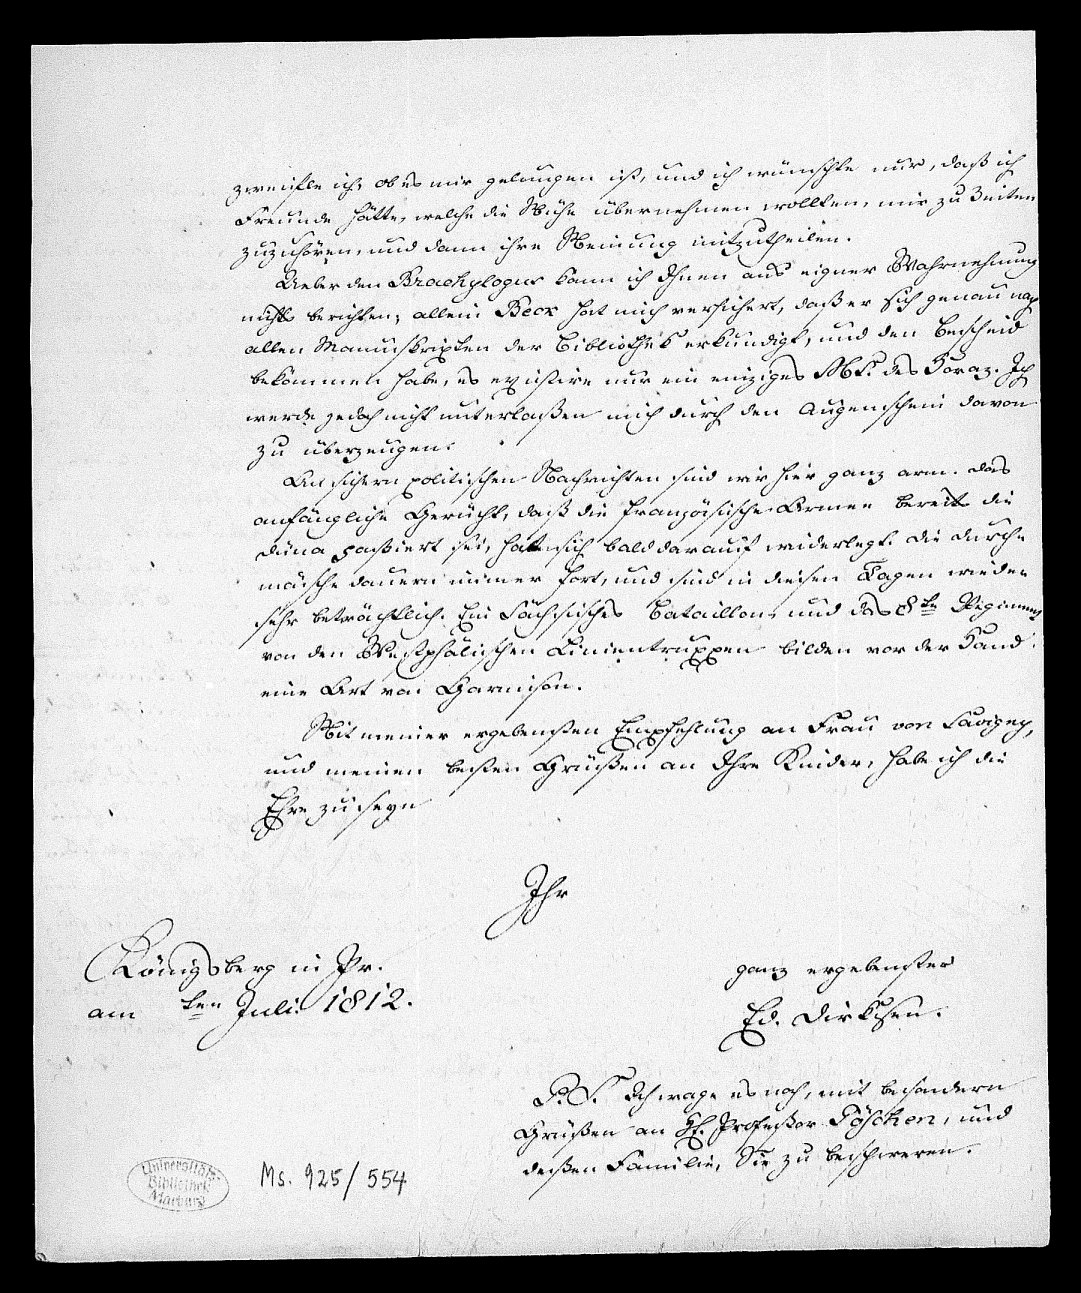 zweifle ich, ob es mir gelungen ist, und ich wünschte nur, daß ich
Freunde hätte, welche die Mühe übernehmen wollten, mir zu Zeiten
zuzuhören, und dann ihre Meinung mitzutheilen.
Ueber den Brachylogus kann ich Ihnen aus eigner Wahrnehmung
nichts berichten; allein Beck hat mich versichert, daß er sich genau nach
allen Manuskripten der Bibliothek erkundigt, und den Bescheid
bekommen habe, es existire nur ein einziges MS. des Horaz. Ich
werde jedoch nicht unterlaßen mich durch den Augenschein davon
zu überzeugen.
An sichern politischen Nachrichten sind wir hier ganz arm. Das
anfängliche Gerücht, daß die französische Armee bereits die
Düna paßiert sei, hat sich bald darauf widerlegt. Die Durch-
märsche dauern immer fort, und sind in diesen Tagen wieder
sehr beträchtlich. Ein Sächsisches Bataillon, und das 8te Regiment
von den Westphälischen Linientruppen bilden vor der Hand
eine Art von Garnison.
Mit meiner ergebensten Empfehlung an Frau von Savigny,
und meinen besten Grüßen an Ihre Kinder, habe ich die
Ehre zu seyn
Ihr
ganz ergebenster
Ed. Dirksen.
Königsberg in Pr.
am ten Juli 1812.
P.S. Ich wage es noch, mit besondern
Grüßen an H. Professor Göschen, und
deßen Familie, Sie zu beschweren.
Universitäts-
Bibliothek
Marburg
Ms. 925/554